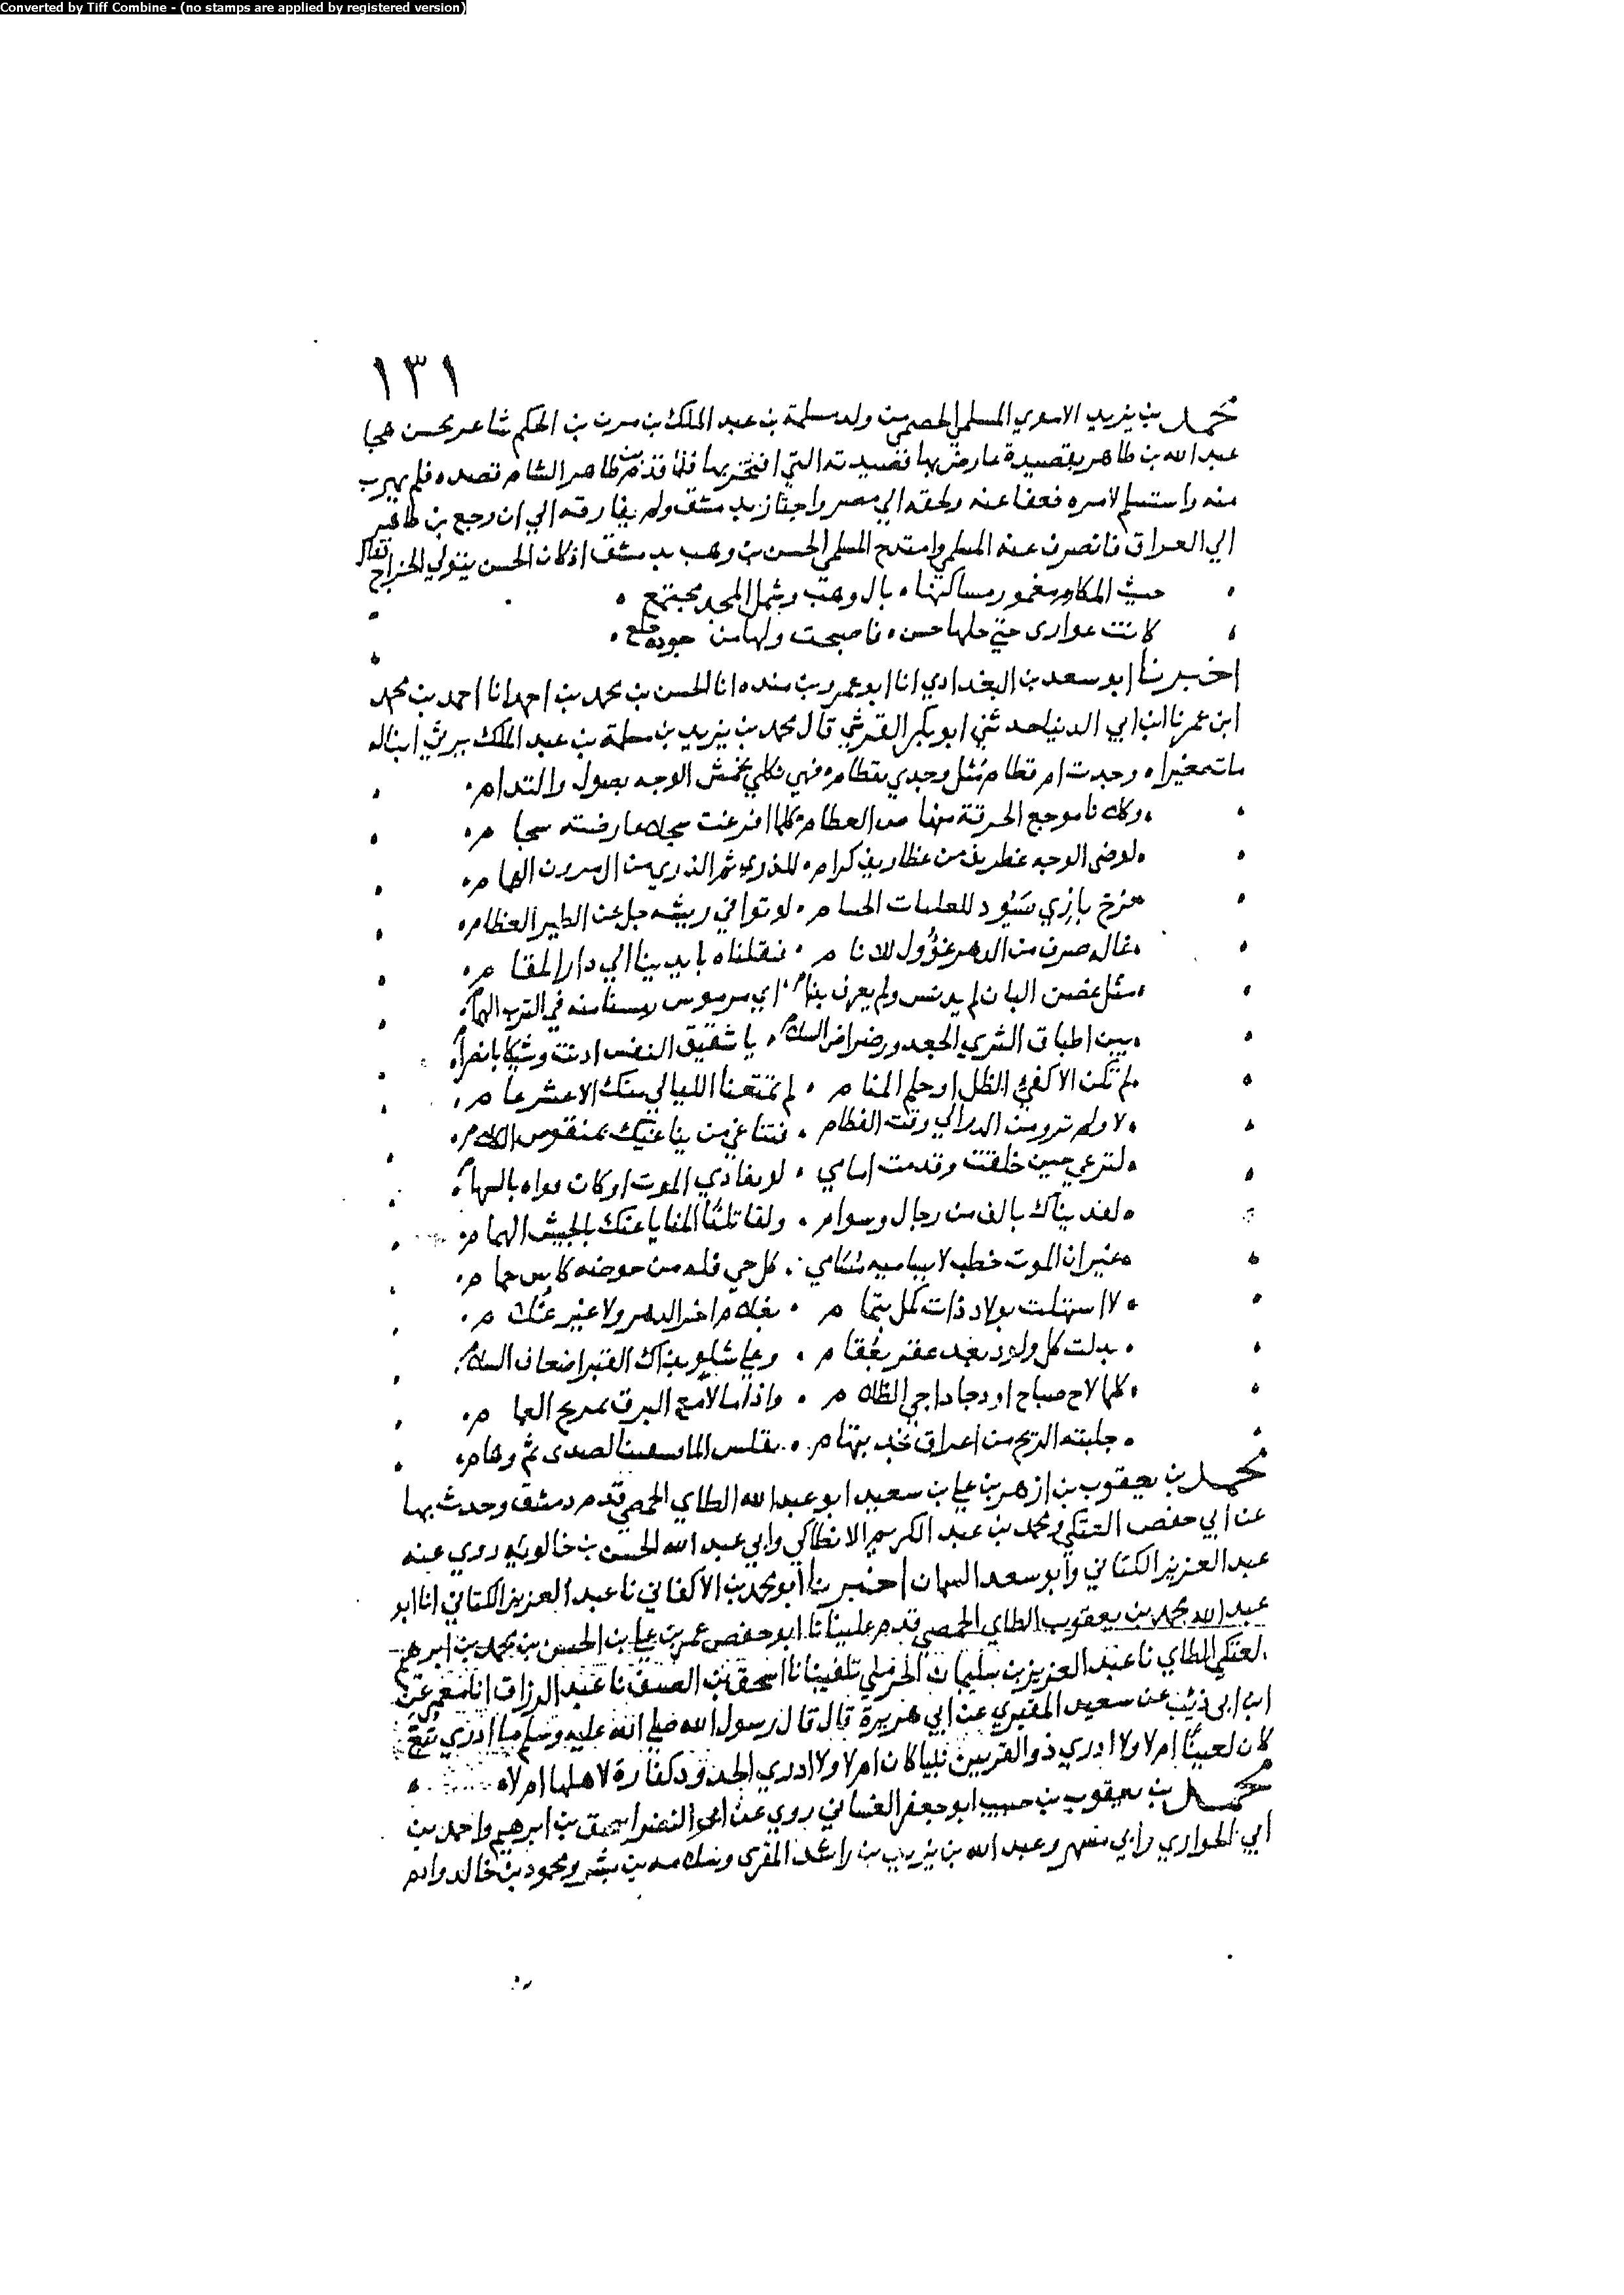 Converted by Tiff Combine - (no stamps are applied by registered version)
١٣١
محمد بن يزيد الاموي المسلمي الحصمي من ولد مسلمة بن عبد الملك بن مرون بن الحكم شاعر محسن هجا
عبد الله بن طاهر بقصيدة عارض بها قصيدته التي افتخر بها فلما قدم بن طاهر الشام قصده فلم يهرب
منه واستسلم لامره فعفا عنه ولحقه الي مصر واجتاز بدمشق ولم يفارقه الي ان رجع بن طاهر
الي العراق فانصرف عنه المسلمي وامتدح المسلمي الحسن بن وهب بدمشق اذ كان الحسن يتولي الخراج فقال
حيث المكارم معمور مساكنها بال وهب وشمل المجد مجتمع
كانت عواري حتي حلها حسن فاصبحت ولها من جوده خلع
اخبرنا ابو سعد بن البغدادي انا ابو عمرو بن منده انا الحسن بن محمد بن احمد انا احمد بن محمد
ابن عمر نا ابن ابي الدنيا حدثني ابو بكر القرشي قال محمد بن يزيد بن مسلمة بن عبد الملك يرثي ابنا له
مات صغيرا وجدت ام قطام مثل وجدي بقطام فهي ثكلي تخمش الوجه بصول والتدام
وكلانا موجع الحرقة منها العظام كلما افرغت سجلا عارضته سجام
لوضي الوجه غطريف من غطاريف كرام للذوي شم الذري من ال مرون الهام
فرخ بازي للعليات الحسام لو توافي ريشه جل عن الطير العظام
غاله صرف من الدهر غوول للانام فنقلناه بايدينا الي دار المقام
مثل غصن البان لم يدنس ولم يعرف بذام اي مرموس رمسنا منه في الترب الهيام
بين اطباق الثري الجعد ورضراض السلام يا شقيق النفس اذنت وشيكا بانصرام
لم تكن الا كفي الظل او حلم المنام لم تمتعنا الليالي منك الا عشر عام
لا ولم ترو من الدر الي وقت الفطام فتناغي من يناغيك بمنقوص الكلام
لترعي حين خلفت وقدمت امامي لو يفادي الموت او كان يواه بالسهام
لفديناك بالف من رجال وسوام ولقاتلنا المنايا عنك بالجيش اللهام
غير ان الموت خطب لا يباميه مسامي كل حي فله من حوضه كاس حمام
لا استهلت بولاد ذات حمل بتمام بغلام اخر الدهر ولا غير غلام
بدلت كل ولود بعد عقر بعقام وعلي شلو بذاك القبر اضعاف السلام
كلما لاح صباح او دجا داجي الظلام واذا ما لامع البرق الغمام
جلبته الريح من اعراق نجد بتهام
محمد بن يعقوب بن ازهر بن علي بن سعيد ابو عبد الله الطاي الحمصي قدم دمشق وحدث بها
عن ابي حفص العتكي ومحمد بن عبد الكريم الانطاكي وابي عبد الله الحسن بن خالويه روي عنه
عبد العزيز الكتاني وابو سعد السمان اخبرنا ابو محمد بن الاكفاني نا عبد العزيز الكتاني انا ابو
عبد الله محمد بن يعقوب الطاي الحمصي قدم علينا نا ابو حفص عمر بن علي بن الحسن بن محمد بن ابرهيم
العتكي الطاي نا عبد العزيز بن سليمان الحرملي تلقينا نا اسحق بن الصيف نا عبد الرزاق انا معمر عن
ابن ابي ذئب عن سعيد المقبري عن ابي هريرة قال قال رسول الله صلي الله عليه وسلم ما ادري تبع
كان لعينا ام لا ولا ادري ذو القرنين نبيا كان ام لا ولا ادري الحدود كفارة لاهلها ام لا
محمد بن يعقوب بن حبيب ابو جعفر الغساني روي عن ابي النضر اسحق بن ابرهيم واحمد بن
ابي الحواري وابي مسهر وعبد الله بن يزيد بن راشد المقري بن بشر ومحمود بن خالد وادم